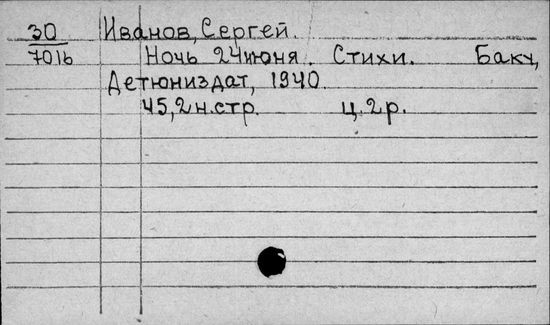 30 Иванов, Сергей.
7016 Ночь 24 июня. Стихи. Баку,
Детюниздат, 1940.
45, 2 н.стр. ц. 2 р.